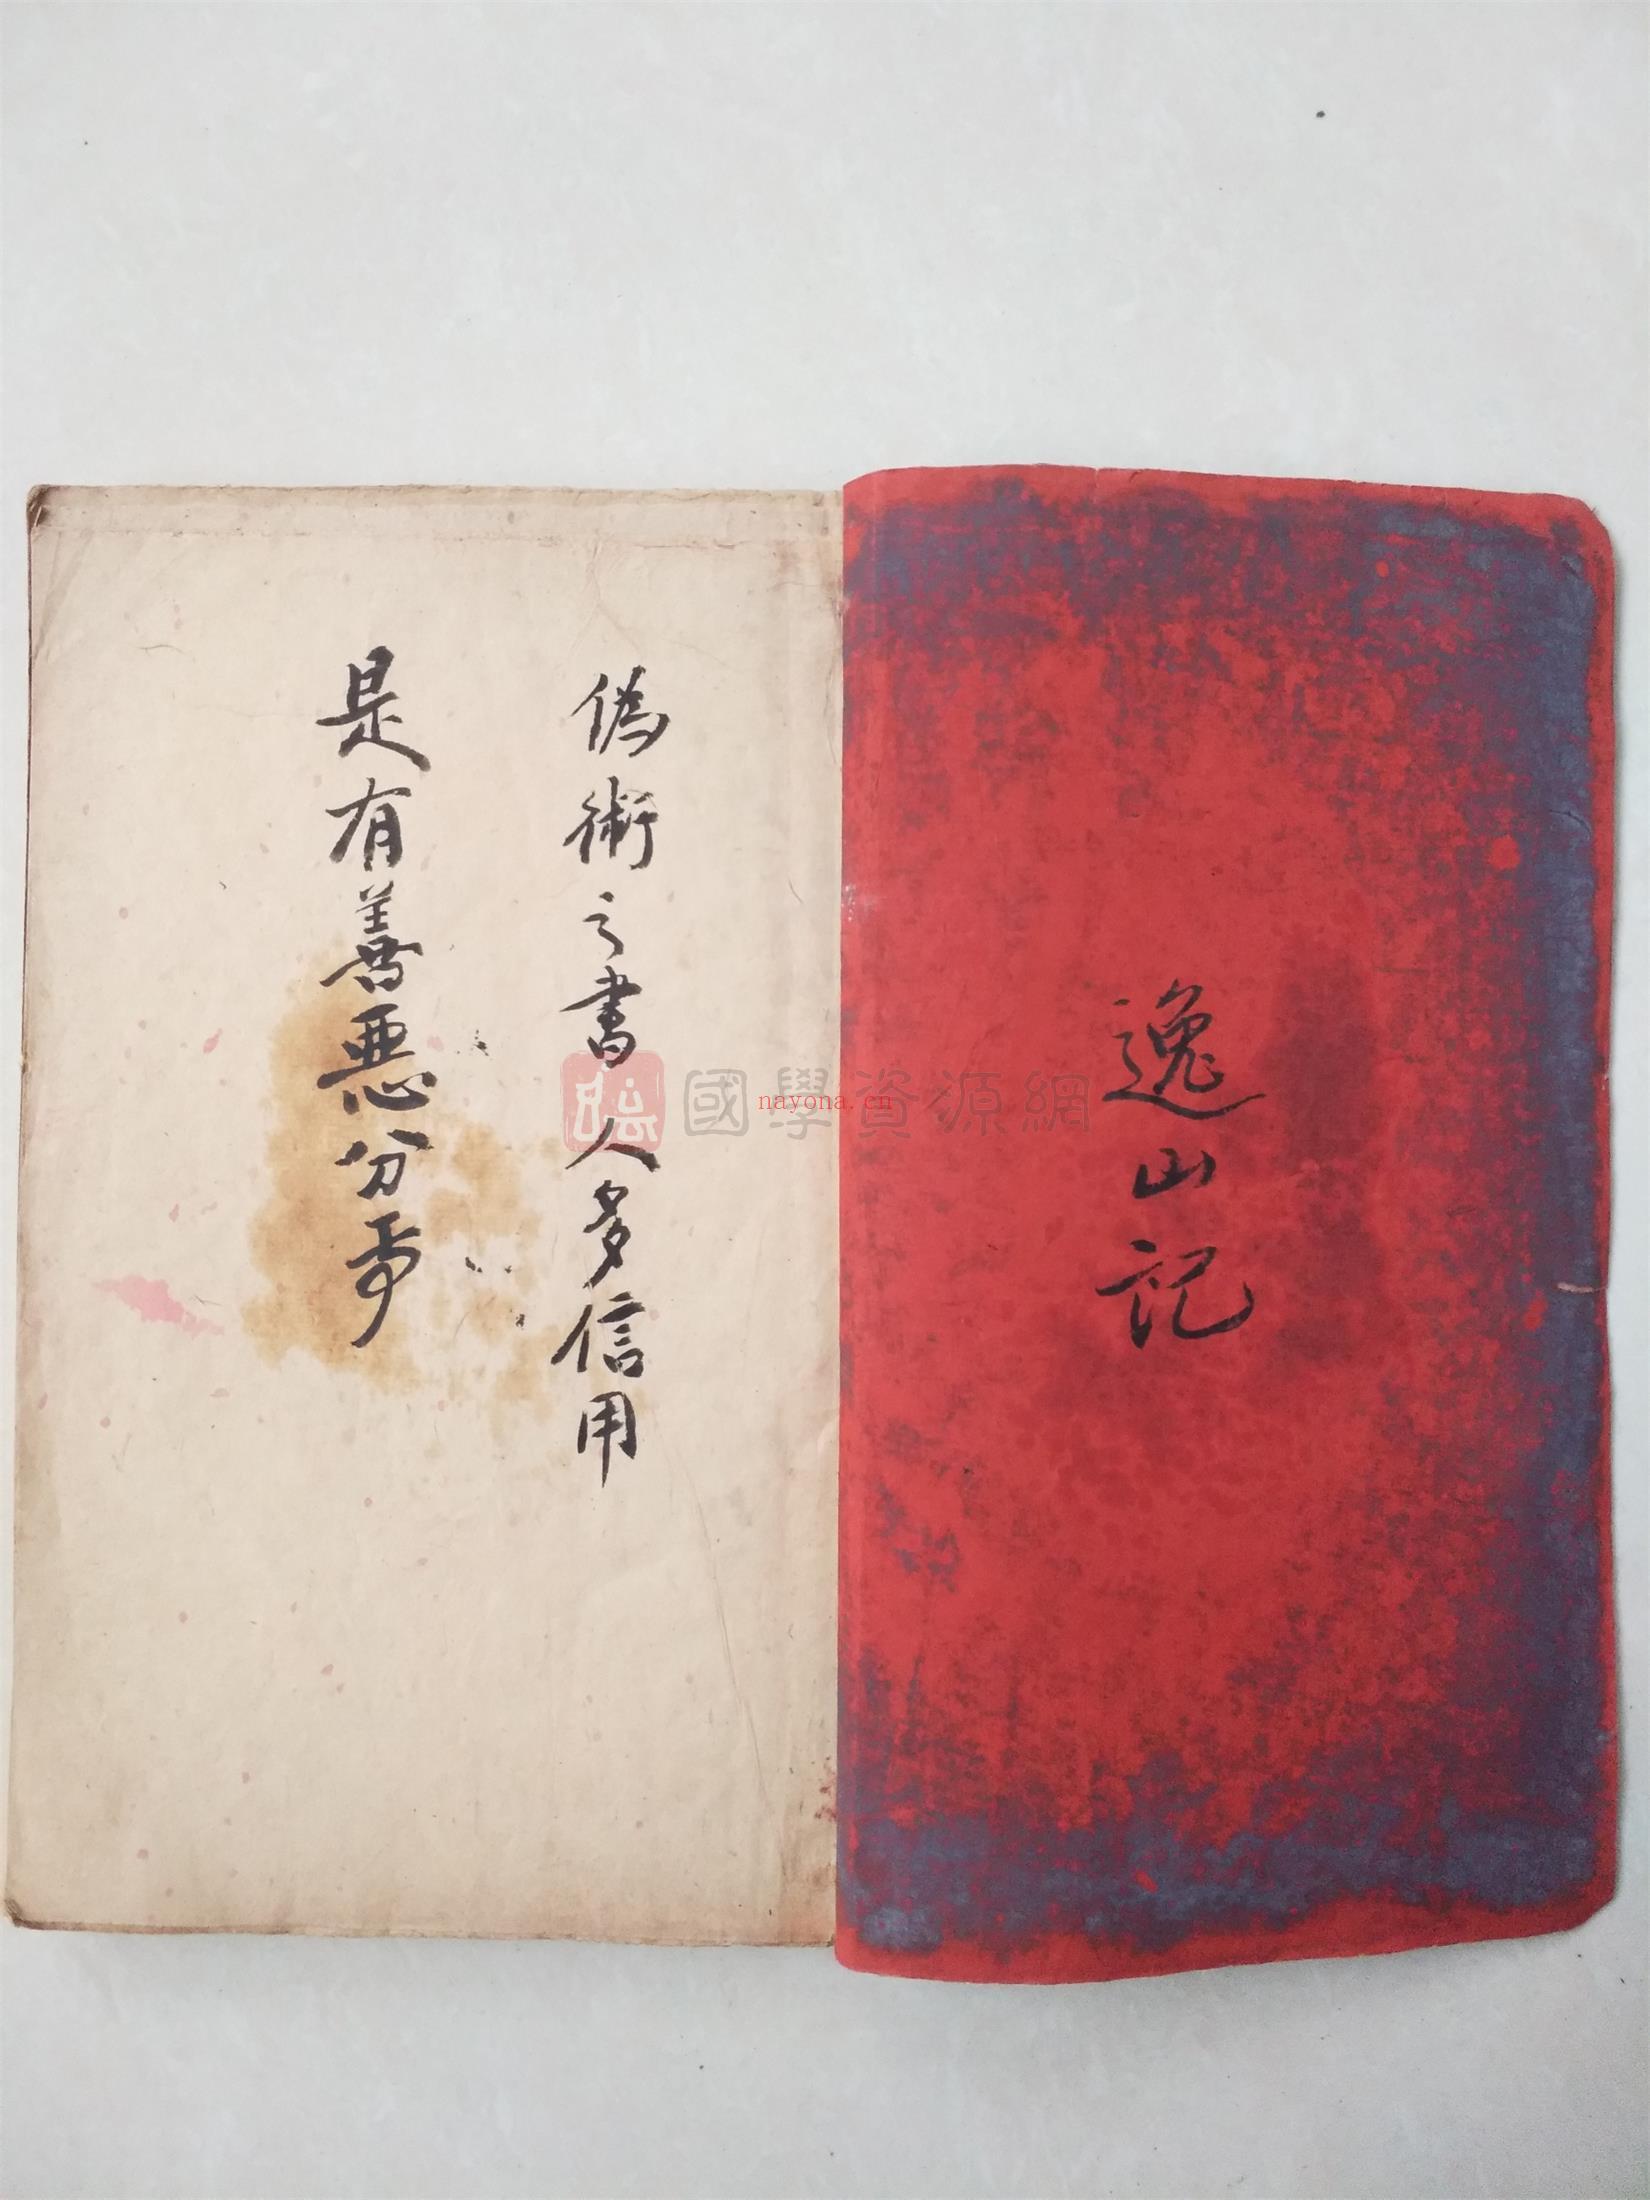 逸山記
偽術之書人多信用
是有善惡分
國學資源網
nayona.cn